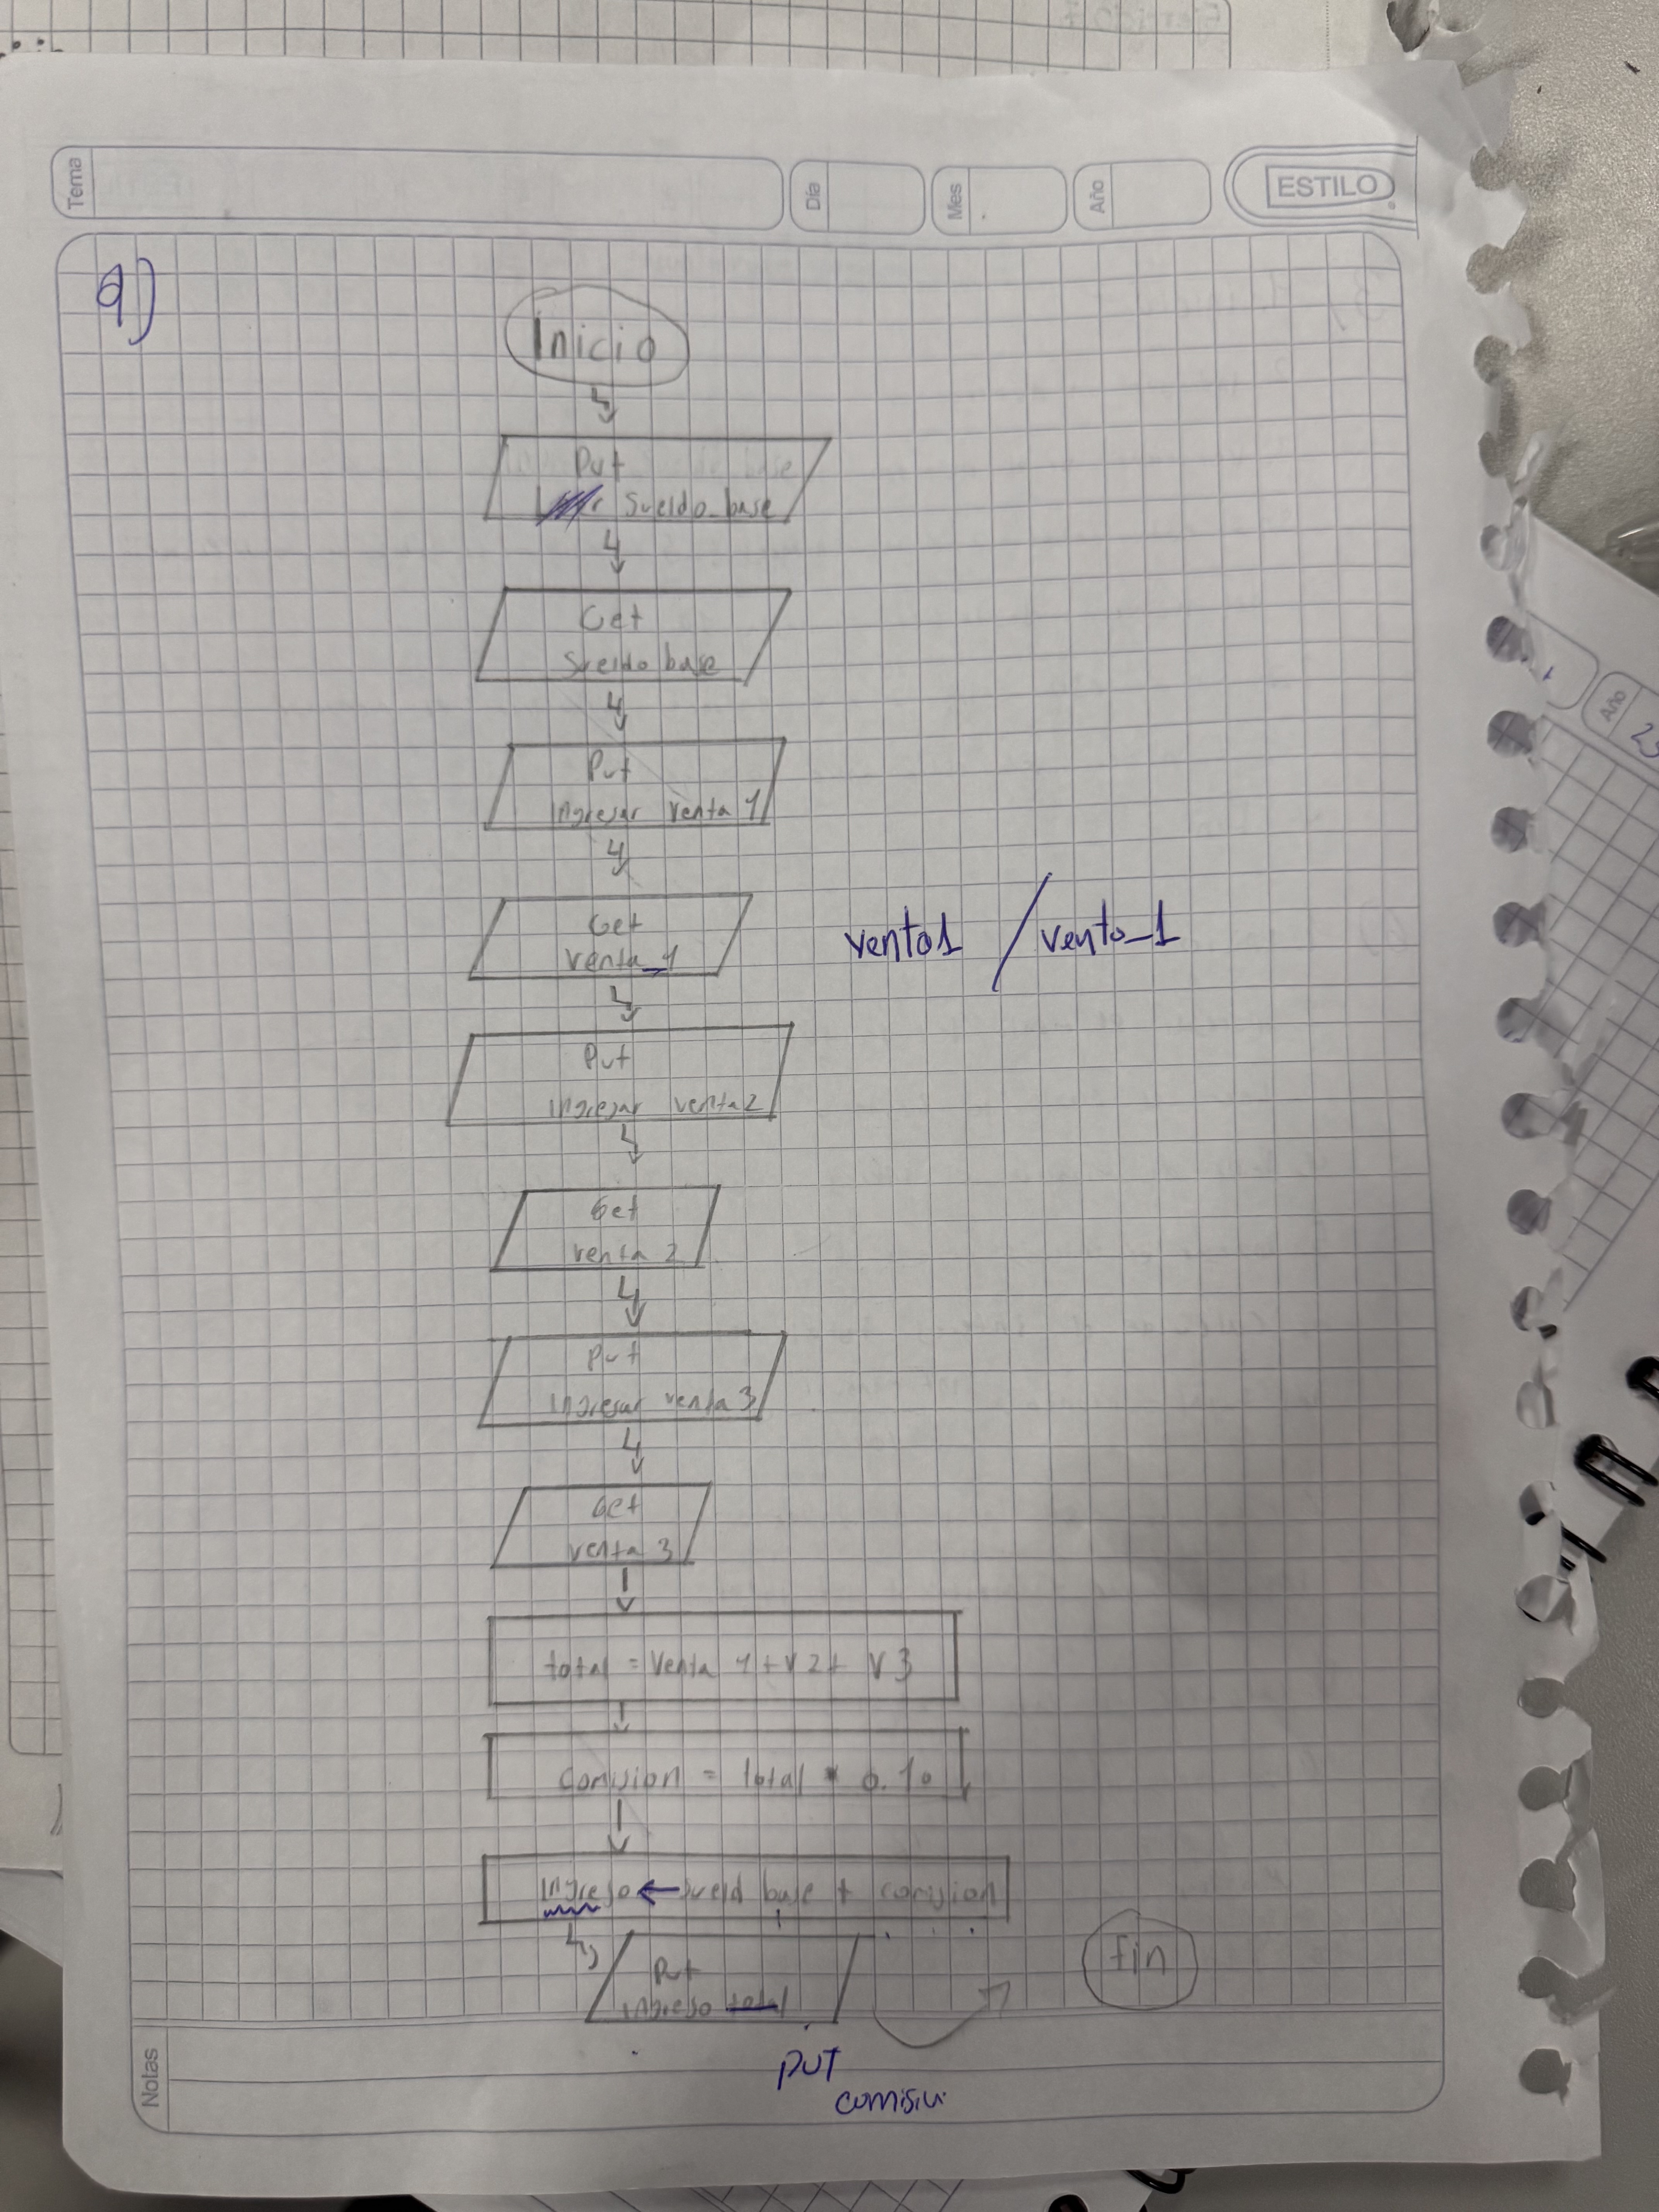 Tema
Día
Mes
Año
ESTILO
9)
Inicio
Put
Sueldo_base
Get
Sueldo base
Put
Ingresar Venta 1
Get
venta_1
venta1 / venta_1
Put
ingresar venta2
Get
venta 2
Put
ingresar venta 3
Get
venta 3
total = Venta 1 + V 2 + V 3
Comision = total * 0.10
Ingreso ← Sueld base + comision
Put
ingreso total
fin
Notas
PUT
Año